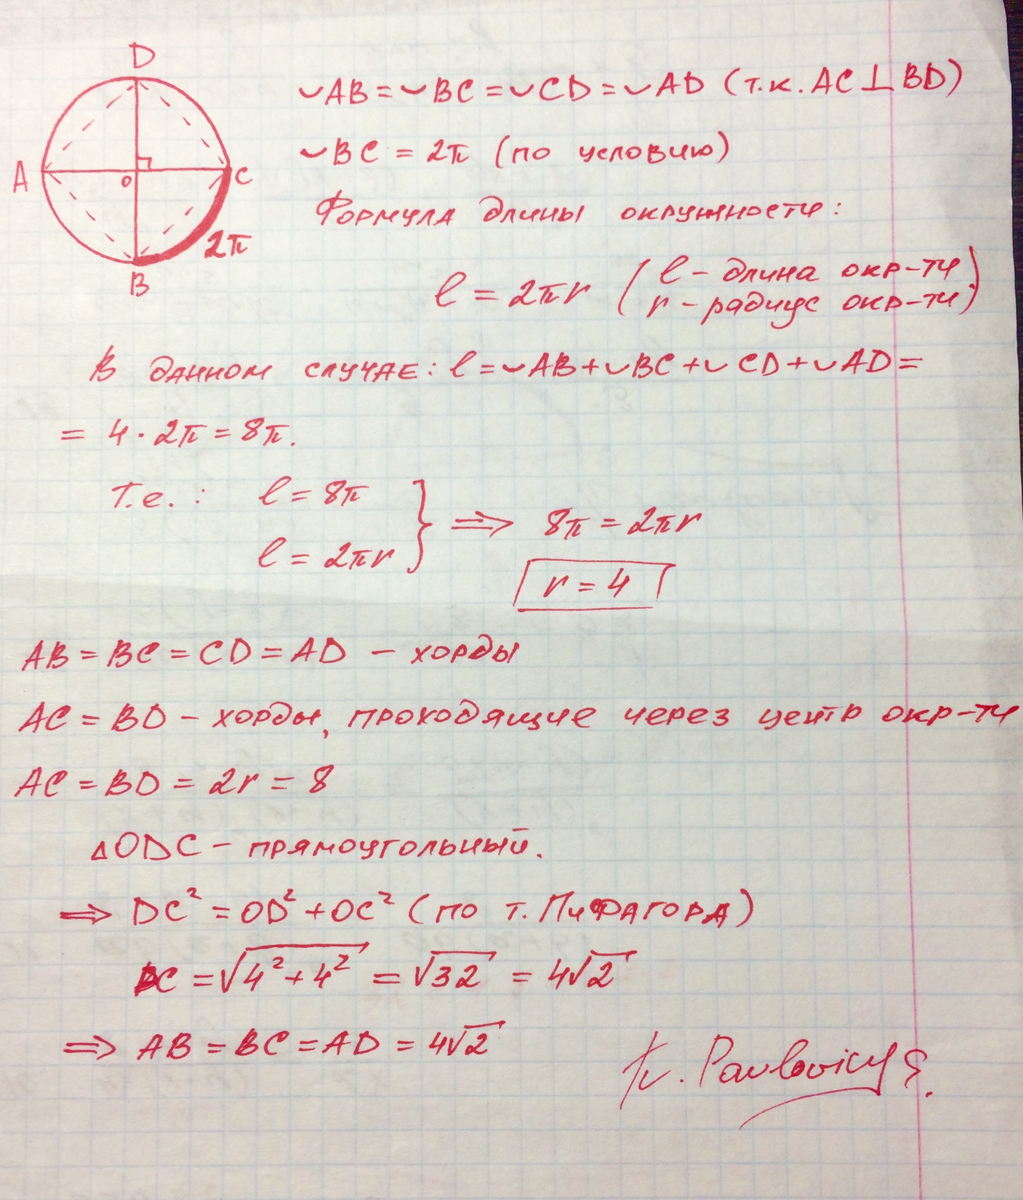 D
A
O
C
2π
B
◡AB = ◡BC = ◡CD = ◡AD (т.к. AC⊥BD)
◡BC = 2π (по условию)
Формула длины окружности:
l = 2πr (l - длина окр-ти
r - радиус окр-ти)
В данном случае: l = ◡AB + ◡BC + ◡CD + ◡AD =
= 4 · 2π = 8π.
Т.е. : l = 8π
l = 2πr } ⟹ 8π = 2πr
r = 4
AB = BC = CD = AD – хорды
AC = BD – хорды, проходящие через центр окр-ти
AC = BD = 2r = 8
△ODC – прямоугольный.
⟹ DC² = OD² + OC² (по т. Пифагора)
DC = √4² + 4² = √32 = 4√2
⟹ AB = BC = AD = 4√2